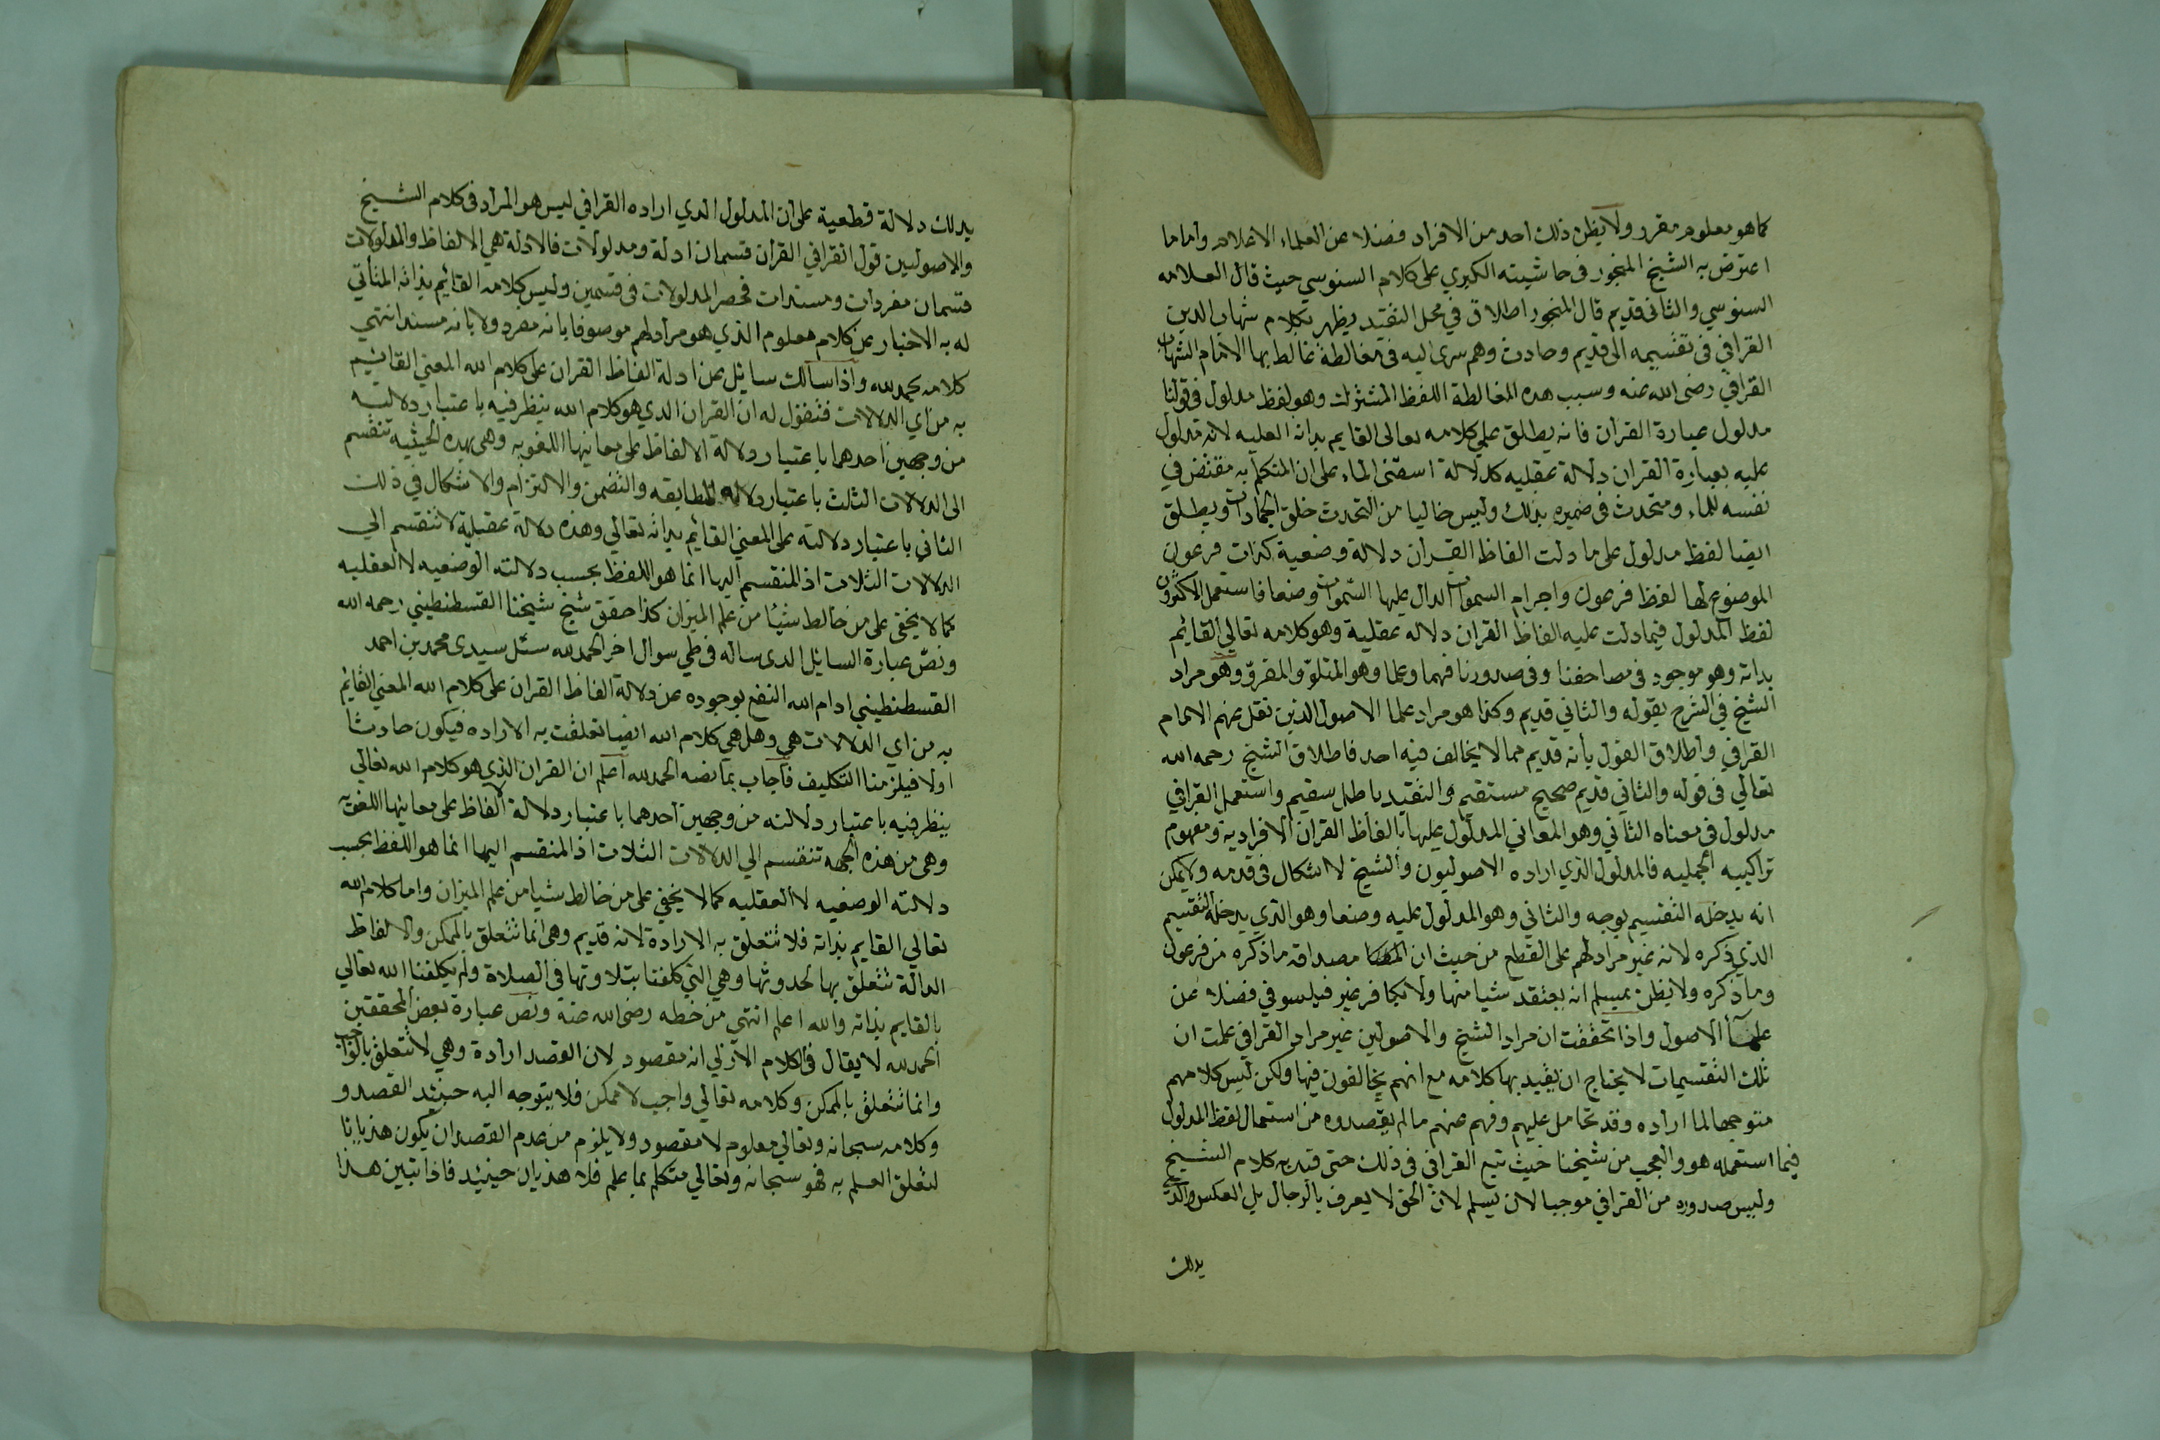 كما هو معلوم مقرر ولا يظن ذلك احد من الافراد فضلا عن العلماء الاعلام واما ما
اعترض به الشيخ المنجور في حاشيته الكبرى على كلام السنوسي حيث قال العلامه
السنوسي والثاني قديم قال المنجور اطلاق في محل التقييد ويظهر بكلام شهاب الدين
القرافي في تقسيمه الى قديم وحادث وهم سرى اليه في مغالطة غالط بها الامام الشهاب
القرافي رضى الله عنه وسبب هذه المغالطة اللفظ المشترك وهو لفظ مدلول في قولنا
مدلول عبارة القران فانه يطلق على كلامه تعالى القايم بذاته العليه لانه مدلول
عليه بعبارة القران دلالة عقليه كدلالة اسقنى الماء على ان المتكلم به مقتض في
نفسه للماء ومتحدث في ضميره بذلك وليس خاليا من التحدث خلق الجمادات ويطلق
ايضا لفظ مدلول على ما دلت الفاظ القران دلالة وضعية كذات فرعون
الموضوع لها لفظ فرعون واجرام السموات الدال عليها السموات وضعا فاستعمل الاكثرون
لفظ المدلول فيما دلت عليه الفاظ القران دلاله عقلية وهو كلامه تعالى القائم
بذاته وهو موجود في مصاحفنا وفي صدورنا فهما وعلما وهو المتلو والمقرو وهو مراد
الشيخ في الشرح بقوله والثاني قديم وكذا هو مراد علما الاصول الذين نقل عنهم الامام
القرافي واطلاق القول بانه قديم مما لا يخالف فيه احد فاطلاق الشيخ رحمه الله
تعالى في قوله والثاني قديم صحيح مستقيم والتقيد باطل سقيم واستعمل القرافي
مدلول في معناه الثاني وهو المعاني المدلول عليها بالفاظ القران الافرادية ومفهوم
تراكيبه الجمليه فالمدلول الذي اراده الاصوليون والشيخ لا اشكال في قدمه ولا يمكن
انه يدخله التقسيم بوجه والثاني وهو المدلول عليه وضعا وهو الذي يدخله التقسيم
الذي ذكره لانه غير مراد لهم على القطع من حيث ان مصداقه ما ذكره من فرعون
وما ذكره ولا يظن بمسلم انه يعتقد شيا منها ولا بكافر غير فيلسوفي فضلا عن
علما الاصول واذا تحققت ان مراد الشيخ والاصولين غير مراد القرافي علمت ان
تلك التقسيمات لا يحتاج ان يقيد بها كلامه مع انهم يخالفون فيها ولكن ليس كلامهم
متوجها لما اراده وقد تحامل عليهم وفهم عنهم ما لم يقصدوه من استعمال لفظ المدلول
فيما استعمله هو والعجب من شيخنا حيث تبع القرافي في ذلك حتى قيد به كلام الشيخ
وليس صدوره من القرافي موجبا لان يسلم لان الحق لا يعرف بالرجال بل العكس والذي
يدلك
يدلك دلالة قطعية على ان المدلول الذي اراده القرافي ليس هو المراد في كلام الشيخ
والاصوليين قول القرافي القران قسمان ادلة ومدلولات فالادلة هي الالفاظ والمدلولات
قسمان مفردات ومسندات فحصر المدلولات في قسمين وليس كلامه القائم بذاته المتأتي
له به الاخبار عن كلام معلوم الذي هو مرادهم موصوفا بانه مفرد ولا بانه مسند انتهى
كلامه بحمد لله واذا سالك سايل عن ادلة الفاظ القران على كلام الله المعنى القائم
به من اي الدلالات فتقول له ان القران الذي هو كلام الله ينظر فيه باعتبار دلاليه
من وجهين احدهما باعتبار دلالة الالفاظ على معانيها اللغويه وهي بهذه الحيثيه تنقسم
الى الدلالات الثلث باعتبار دلالة المطابقه والتضمن والالتزام والاشكال في ذلك
الثاني باعتبار دلالته على المعنى القايم بذاته تعالى وهذه دلالة عقلية لا تنقسم الى
الدلالات الثلاث اذ المنقسم اليها انما هو اللفظ بحسب دلالته الوضعيه لا العقليه
كما لا يخفى على من خالط شيئا من علم الميزان كذا حقق شيخ شيخنا القسطنطيني رحمه الله
ونص عبارة السائل الذي ساله في طي سوال اخر الحمد لله سئل سيدى محمد بن احمد
القسطنطيني ادام الله النفع بوجوده عن دلالة الفاظ القران على كلام الله المعنى القائم
به من اي الدلالات هي وهل هي كلام الله ايضا تعلقت به الاراده فيكون حادثا
اولا فيلزمنا التكليف فاجاب بما نصه الحمد لله اعلم ان القران الذي هو كلام الله تعالى
ينظر فيه باعتبار دلالته من وجهين احدهما باعتبار دلالة الفاظ على معانيها اللغوية
وهي من هذه الجهه تنقسم الى الدلالات الثلاث اذ المنقسم اليها انما هو اللفظ بحسب
دلالته الوضعيه لا العقليه كما لا يخفي على من خالط شيا من علم الميزان واما كلام الله
تعالى القايم بذاته فلا تتعلق به الارادة لانه قديم وهي انما تتعلق بالممكن والالفاظ
الدالة تتعلق بها لحدوثها وهي التي كلفنا بتلاوتها في الصلاة ولم يكلفنا الله تعالى
بالقايم بذاته والله اعلم انتهى من خطه رضى الله عنه ونص عبارة بعض المحققين
الحمد لله لا يقال في الكلام الازلي انه مقصود لان القصد ارادة وهي لا تتعلق بالواجب
وانما تتعلق بالممكن وكلامه تعالى واجب لا ممكن فلا يتوجه اليه حينئذ القصد و
وكلامه سبحانه وتعالى معلوم لا مقصود ولا يلزم من عدم القصد ان يكون هذيانا
لتعلق العلم به فهو سبحانه وتعالى متكلم بما علم فلا هذيان حينئذ فاذا تبين هذا